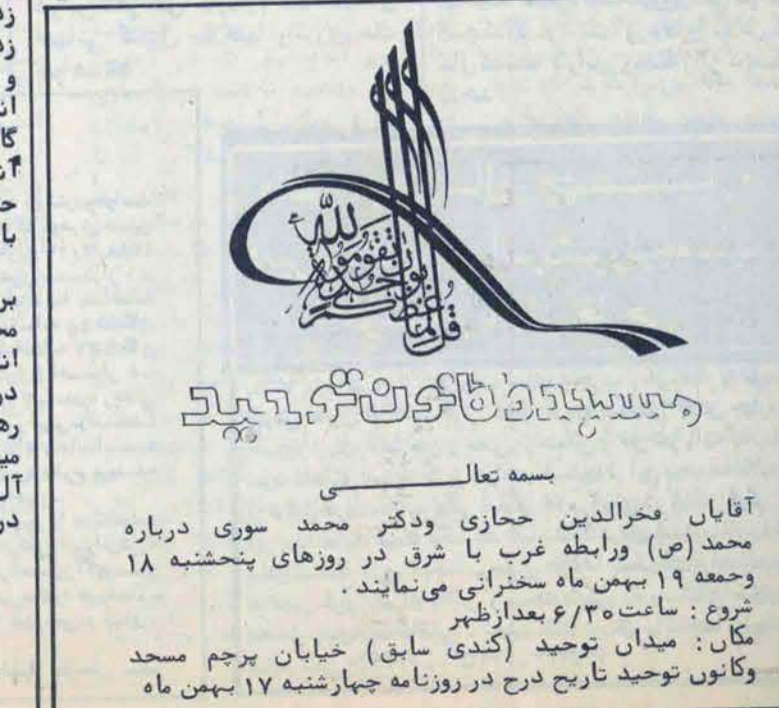 قل انما اعظکم بواحدة ان تقوموا لله
مسجد و کانون توحید
بسمه تعالـــــــــی
آقایان فخرالدین حجازی ودکتر محمد سوری درباره
محمد (ص) ورابطه غرب با شرق در روزهای پنجشنبه ۱۸
وجمعه ۱۹ بهمن ماه سخنرانی می‌نمایند .
شروع : ساعت ۶/۳۰ بعدازظهر
مکان : میدان توحید (کندی سابق) خیابان پرچم مسجد
وکانون توحید تاریخ درج در روزنامه چهارشنبه ۱۷ بهمن ماه